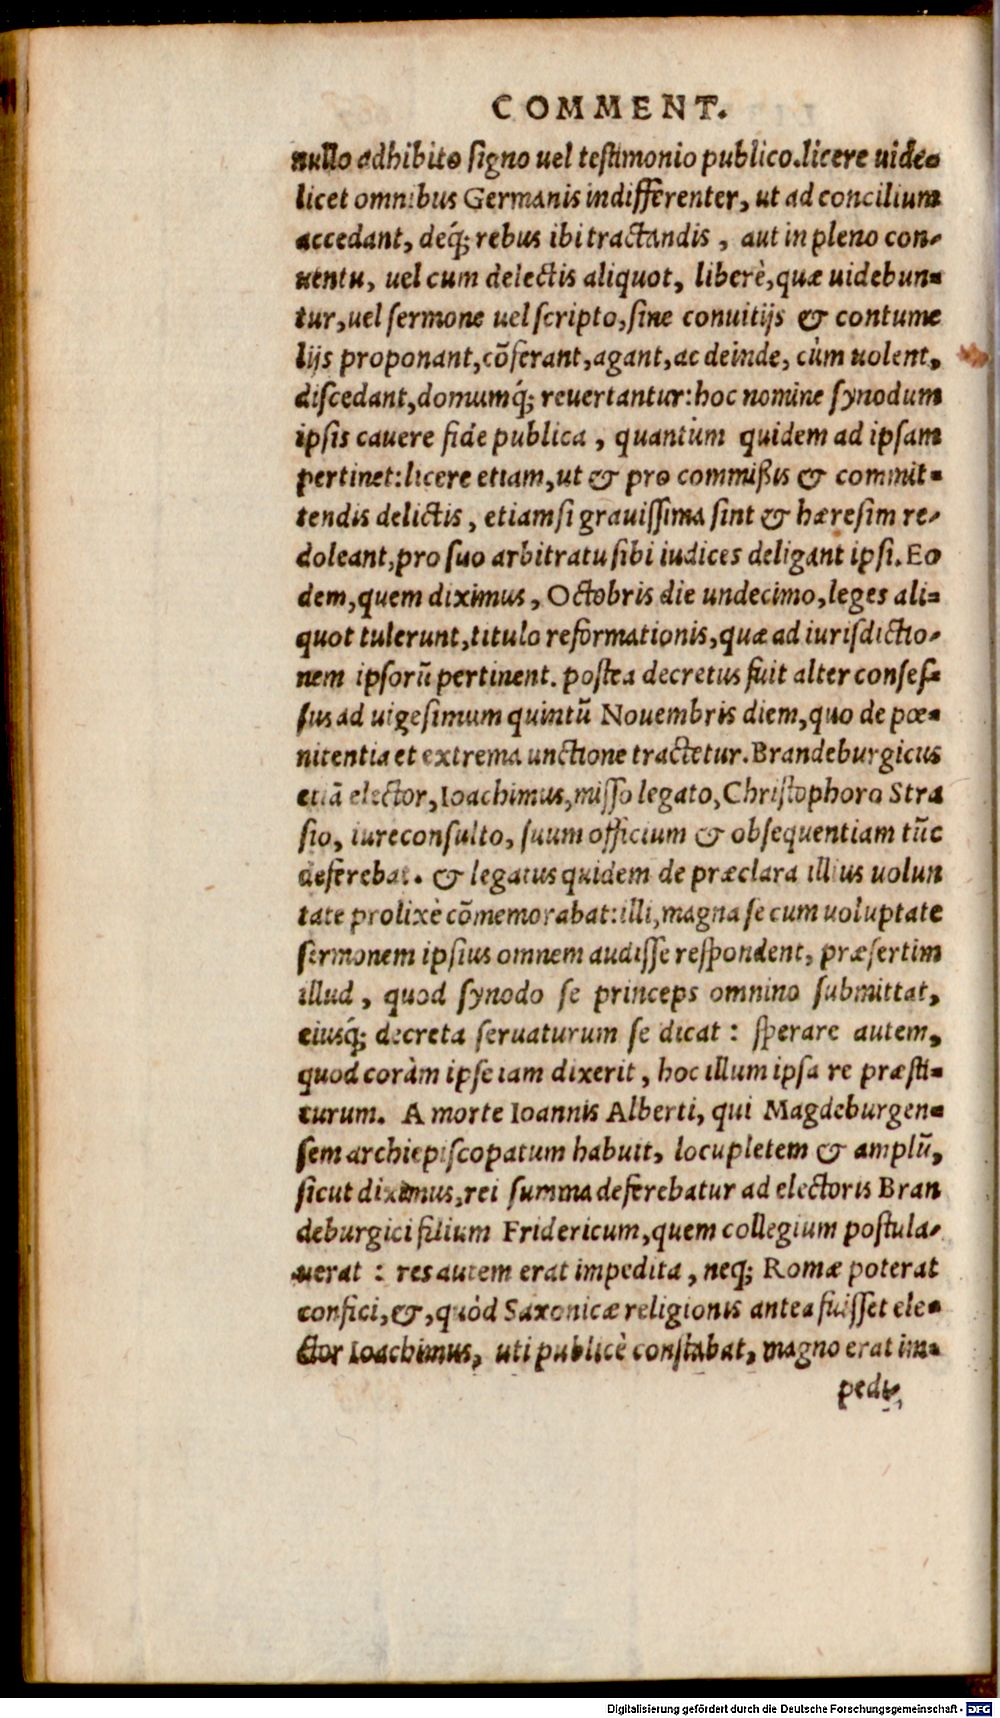 COMMENT.
nullo adhibito signo uel testimonio publico.licere uide-
licet omnibus Germanis indifferenter, ut ad concilium
accedant, deq́; rebus ibi tractandis, aut in pleno con-
uentu, uel cum delectis aliquot, liberè, quæ uidebun-
tur, uel sermone uel scripto, sine conuitijs & contume
lijs proponant, cõferant, agant, ac deinde, cùm uolent,
discedant, domumq́; reuertantur: hoc nomine synodum
ipsis cauere fide publica, quantum quidem ad ipsam
pertinet: licere etiam, ut & pro commißis & commit-
tendis delictis, etiamsi grauissima sint & hæresim re-
doleant, pro suo arbitratu sibi iudices deligant ipsi. Eo
dem, quem diximus, Octobris die undecimo, leges ali-
quot tulerunt, titulo reformationis, quæ ad iurisdictio-
nem ipsorũ pertinent. postea decretus fuit alter conses-
sus ad uigesimum quintũ Nouembris diem, quo de pœ-
nitentia et extrema unctione tractetur. Brandeburgicus
etiã elector, Ioachimus, misso legato, Christophoro Stra
sio, iureconsulto, suum officium & obsequentiam tũc
deferebat. & legatus quidem de præclara illius uolun
tate prolixè cõmemorabat: illi, magna se cum uoluptate
sermonem ipsius omnem audisse respondent, præsertim
illud, quod synodo se princeps omnino submittat,
eiusq́; decreta seruaturum se dicat: sperare autem,
quod coràm ipse iam dixerit, hoc illum ipsa re præsti-
turum. A morte Ioannis Alberti, qui Magdeburgen-
sem archiepiscopatum habuit, locupletem & amplũ,
sicut diximus, rei summa deferebatur ad electoris Bran
deburgici filium Fridericum, quem collegium postula-
uerat: res autem erat impedita, neq; Romæ poterat
confici, &, quòd Saxonicæ religionis antea fuisset ele-
ctor Ioachimus, uti publicè constabat, magno erat im-
pedi,
Digitalisierung gefördert durch die Deutsche Forschungsgemeinschaft - DFG